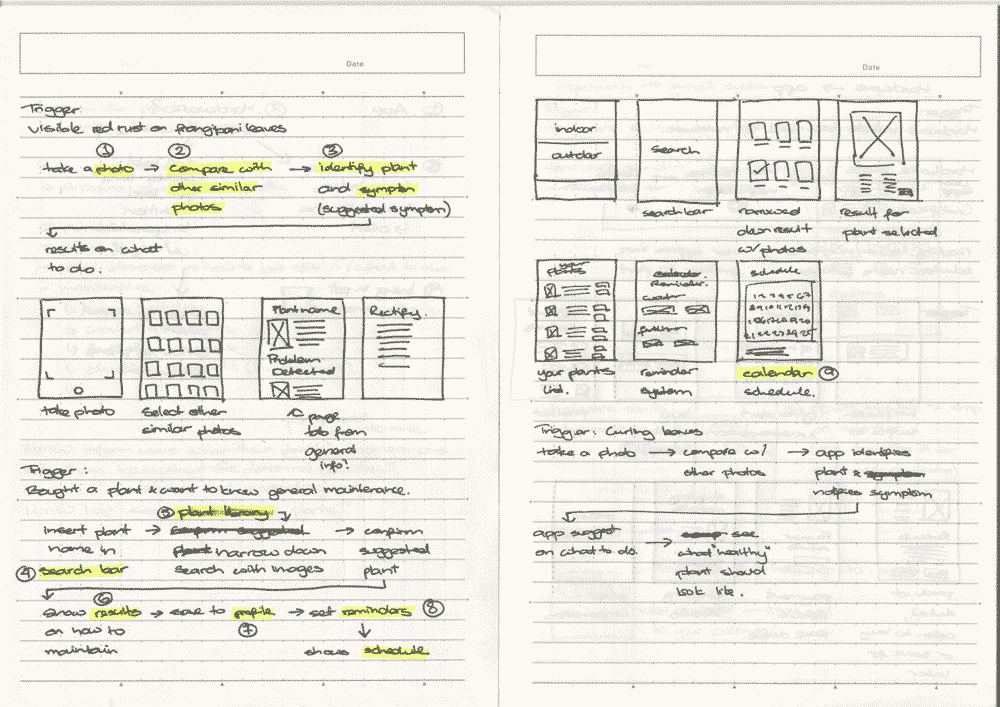 Date
Trigger:
visible red rust on frangipani leaves
① ② ③
take a photo → compare with → identify plant
other similar and symptom
photos (suggested symptom)
results on what
to do.
Plant name Rectify.
Problem
Detected
take photo select other page
similar photos tab from
general
info?
Trigger:
Bought a plant & want to know general maintenance.
⑤ plant library
insert plant → → confirm
name in narrow down suggested
④ search bar search with images plant
⑥
show results → save to profile → set reminders ⑧
on how to ⑦
maintain shows schedule
Date
indoor
outdoor
search
search bar narrowed result for
down result plant selected
w/ photos
your
plants
Reminder.
schedule
your plants reminder calendar ⑨
list. system schedule.
Trigger: Curling leaves
take a photo → compare w/ → app identifies
other photos plant &
notifies symptom
app suggest → see
on what to do. what "healthy"
plant should
look like.